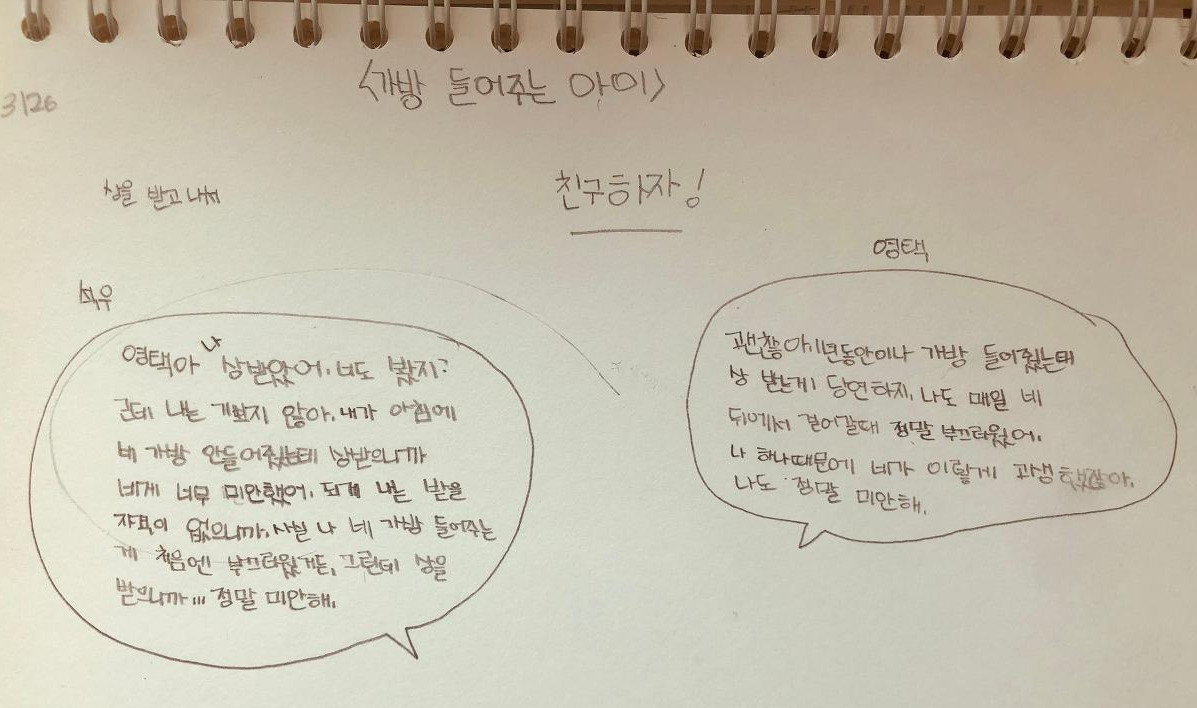 3/26
<가방 들어주는 아이>
상을 받고 나서
친구하자!
석우
영택아 나 상받았어. 너도 봤지?
근데 나는 기쁘지 않아. 내가 아침에
네 가방 안들어줬는데 상받으니까
네게 너무 미안했어. 되게 나는 받을
자격이 없으니까. 사실 나 네 가방 들어주는
게 처음엔 부끄러웠거든, 그런데 상을
받으니까... 정말 미안해.
영택
괜찮아 1년동안이나 가방 들어줬는데
상 받는게 당연하지. 나도 매일 네
뒤에서 걸어갈때 정말 부끄러웠어.
나 하나때문에 네가 이렇게 고생했잖아.
나도 정말 미안해.